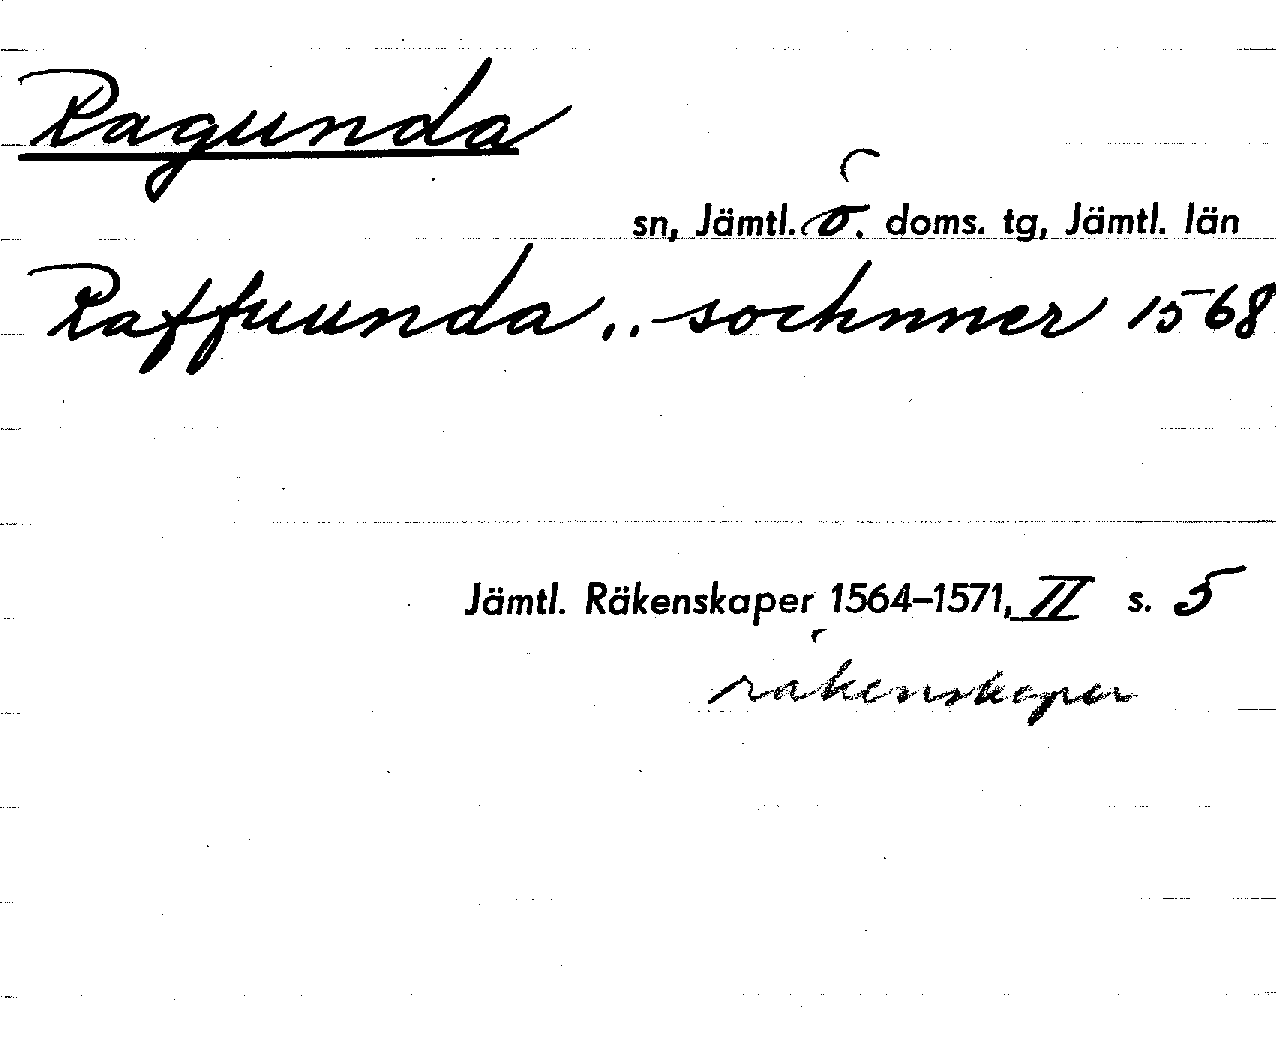 Ragunda
sn, Jämtl. ö. doms. tg, Jämtl. län
Raffuunda,. sochnner 1568
Jämtl. Räkenskaper 1564–1571, II s. 5
räkenskaper